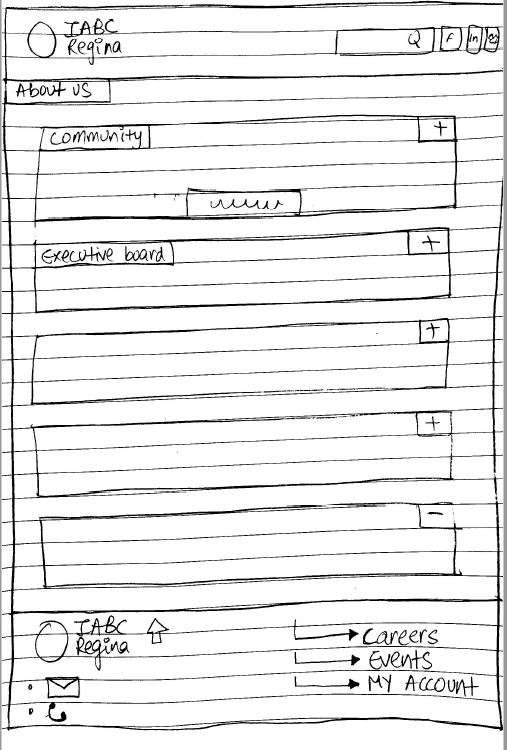 IABC
Regina
Q
F
in
About us
Community
+
Executive board
+
+
+
-
IABC
Regina
Careers
Events
MY ACCOUNT